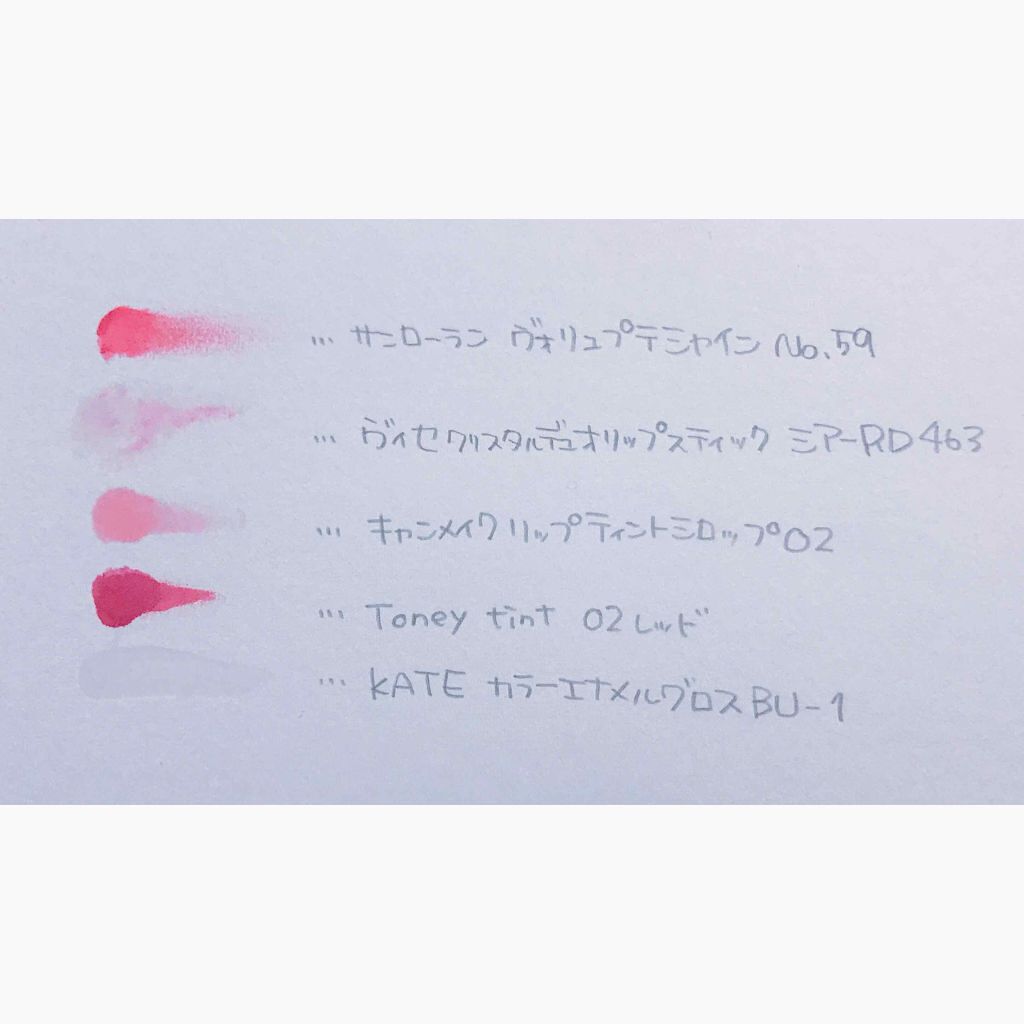 … サンローラン ヴォリュプテシャイン No.59
… ヴィセクリスタルデュオリップスティック ミアーRD463
… キャンメイクリップティントミロップ02
… Toney tint 02 レッド
… KATE カラーエナメルグロスBU-1